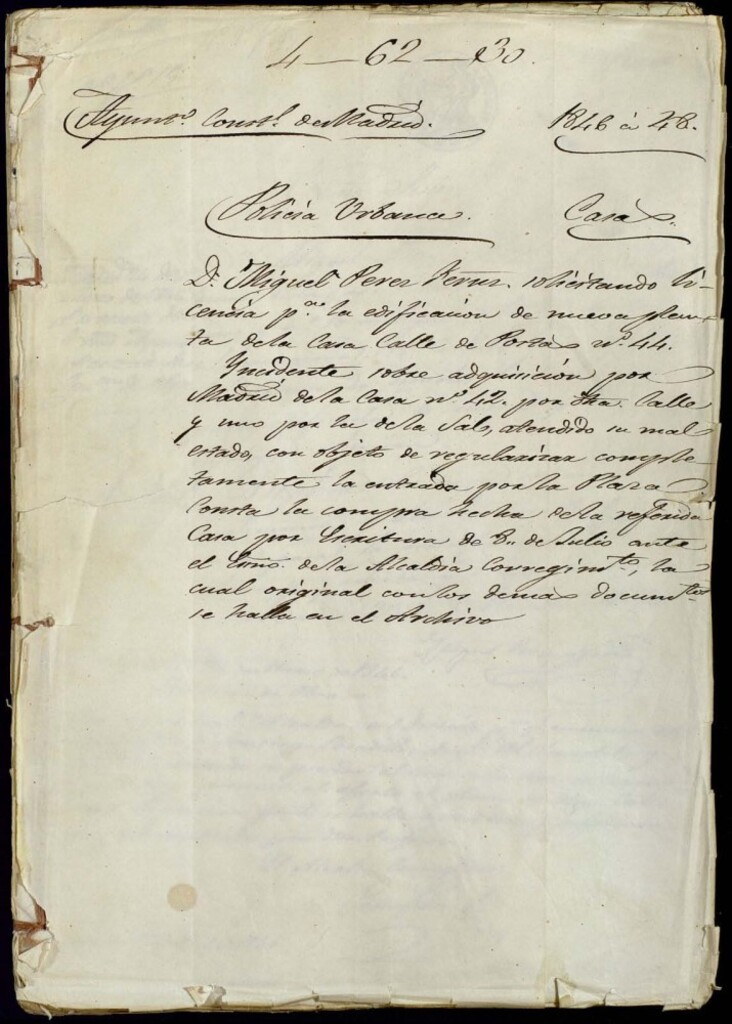 4-62-30.
Ayunt.º Const.l de Madrid. 1846 á 48.
Policia Urbana. Casas.
D. Miguel Perez solicitando li-
cencia p.ª la edificacion de nueva plan-
ta de la Casa Calle de Postas n.º 44.
Yncidente sobre adquisicion por
Madrid de la Casa n.º 42. por dha. Calle
y uno por la de la Sal, atendido su mal
estado, con objeto de regularizar comple-
tamente la entrada por la Plaza
Consta la compra hecha de la referida
Casa por Escritura de 3,, de Julio ante
el Esno. de la Alcaldia Corregim.to, la
cual original con los demas docum.tos
se halla en el Archivo